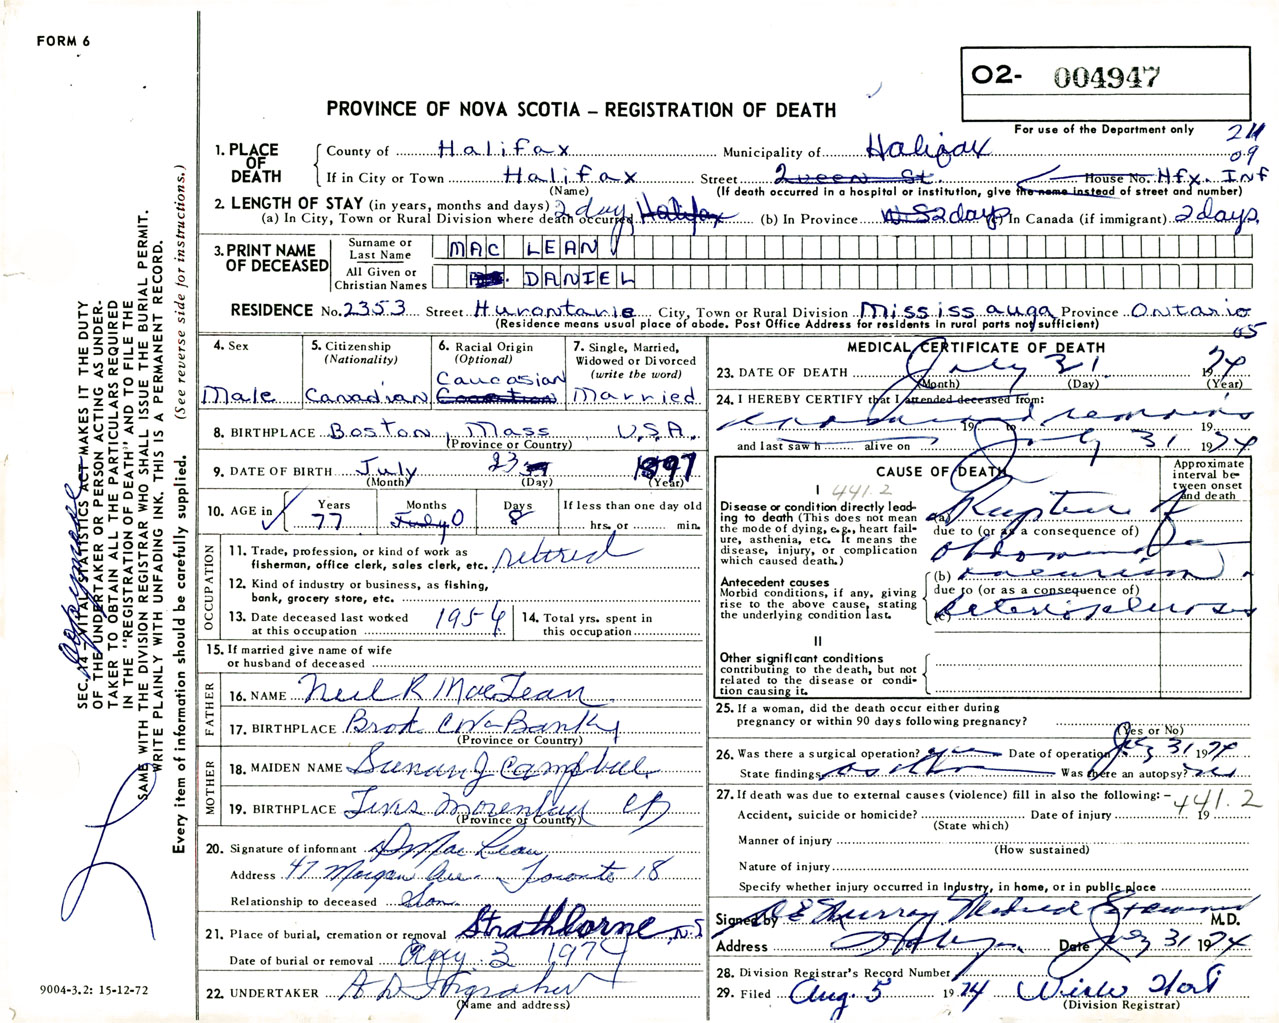 FORM 6
O2- 004947
PROVINCE OF NOVA SCOTIA – REGISTRATION OF DEATH
For use of the Department only
211
09
1. PLACE OF DEATH
County of Halifax Municipality of Halifax
If in City or Town Halifax Street Queen St. House No. Hfx. Inf
(Name) (If death occurred in a hospital or institution, give the name instead of street and number)
2. LENGTH OF STAY (in years, months and days)
(a) In City, Town or Rural Division where death occurred 2 day Halifax (b) In Province NS 2 days (c) In Canada (if immigrant) 2 days
3. PRINT NAME OF DECEASED
Surname or Last Name MAC LEAN
All Given or Christian Names DANIEL
RESIDENCE No. 2353 Street Hurontario City, Town or Rural Division Mississauga Province Ontario
(Residence means usual place of abode. Post Office Address for residents in rural parts not sufficient)
05
4. Sex
Male
5. Citizenship
(Nationality)
Canadian
6. Racial Origin
(Optional)
Caucasian
7. Single, Married, Widowed or Divorced
(write the word)
Married
8. BIRTHPLACE Boston, Mass U.S.A.
(Province or Country)
9. DATE OF BIRTH July 23 1897
(Month) (Day) (Year)
10. AGE IN
Years 77
Months July 0
Days 8
If less than one day old
hrs. or min.
OCCUPATION
11. Trade, profession, or kind of work as fisherman, office clerk, sales clerk, etc. retired
12. Kind of industry or business, as fishing, bank, grocery store, etc.
13. Date deceased last worked at this occupation 1954
14. Total yrs. spent in this occupation
15. If married give name of wife or husband of deceased
FATHER
16. NAME Neil R MacLean
17. BIRTHPLACE
(Province or Country)
MOTHER
18. MAIDEN NAME J Campbell
19. BIRTHPLACE CB
(Province or Country)
20. Signature of informant D Mac Lean
Address 47 Morgan Ave. Toronto 18
Relationship to deceased Son
21. Place of burial, cremation or removal Strathlorne, N.S
Date of burial or removal Aug 3 1974
22. UNDERTAKER
(Name and address)
MEDICAL CERTIFICATE OF DEATH
23. DATE OF DEATH July 31 1974
(Month) (Day) (Year)
24. I HEREBY CERTIFY that I attended deceased from:
examined remains
19 to 19
and last saw h alive on July 31 1974
CAUSE OF DEATH
Approximate interval between onset and death
I 441.2
Disease or condition directly leading to death (This does not mean the mode of dying, e.g., heart failure, asthenia, etc. It means the disease, injury, or complication which caused death.)
(a) Rupture of
due to (or as a consequence of)
abdominal
Antecedent causes
Morbid conditions, if any, giving rise to the above cause, stating the underlying condition last.
(b) aneurism
due to (or as a consequence of)
(c) arteriosclerosis
II
Other significant conditions contributing to the death, but not related to the disease or condition causing it.
25. If a woman, did the death occur either during pregnancy or within 90 days following pregnancy?
(Yes or No)
26. Was there a surgical operation? yes Date of operation July 31 1974
State findings as above Was there an autopsy?
27. If death was due to external causes (violence) fill in also the following: – 441.2
Accident, suicide or homicide? Date of injury 19
(State which)
Manner of injury
(How sustained)
Nature of injury
Specify whether injury occurred in Industry, in home, or in public place
Signed by Murray Medical Examiner M.D.
Address Hfx Date July 31 1974
28. Division Registrar's Record Number
29. Filed Aug. 5 1974
(Division Registrar)
SEC. 14 – VITAL STATISTICS ACT MAKES IT THE DUTY
OF THE UNDERTAKER OR PERSON ACTING AS UNDER-
TAKER TO OBTAIN ALL THE PARTICULARS REQUIRED
IN THE "REGISTRATION OF DEATH" AND TO FILE THE
SAME WITH THE DIVISION REGISTRAR WHO SHALL ISSUE THE BURIAL PERMIT.
WRITE PLAINLY WITH UNFADING INK. THIS IS A PERMANENT RECORD.
Every item of information should be carefully supplied. (See reverse side for instructions.)
9004-3.2: 15-12-72